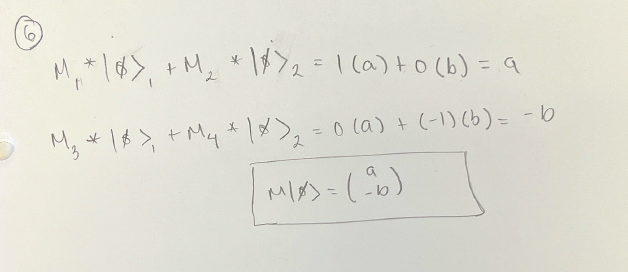 6
M₁*|ϕ⟩₁ + M₂ *|ϕ⟩₂ = 1(a) + 0(b) = a
M₃*|ϕ⟩₁ + M₄*|ϕ⟩₂ = 0(a) + (-1)(b) = -b
M|ϕ⟩ = (a -b)